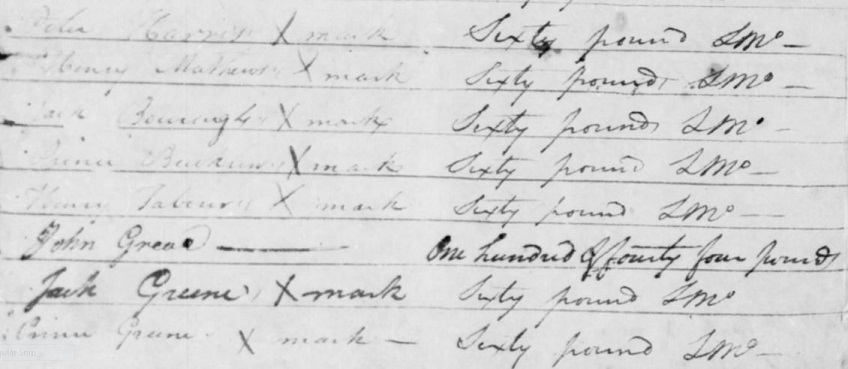 Harris X mark Sixty pound LMo —
Henry Mathews X mark Sixty pounds LMo —
Jack Bourroughs X mark Sixty pounds LMo —
Prince X mark Sixty pound LMo —
Henry Tabour X mark Sixty pound LMo —
John Greao —— One hundred & fourty four pounds
Jack Greene X mark Sixty pound LMo
Prince Greene X mark — Sixty pound LMo —